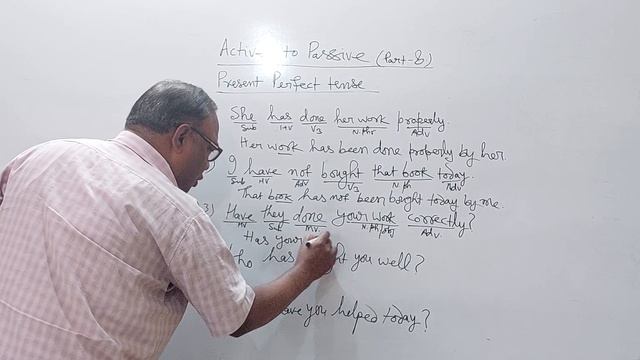 Active to Passive (Part-8)
Present Perfect tense
She has done her work properly.
Sub HV V3 N.Phr Adv
Her work has been done properly by her.
I have not bought that book today.
Sub HV Adv V3 N.Ph Adv
That book has not been bought today by me.
3) Have they done your work correctly?
HV Sub MV N.Ph/obj Adv
Has your
ho has ht you well?
ave you helped today?